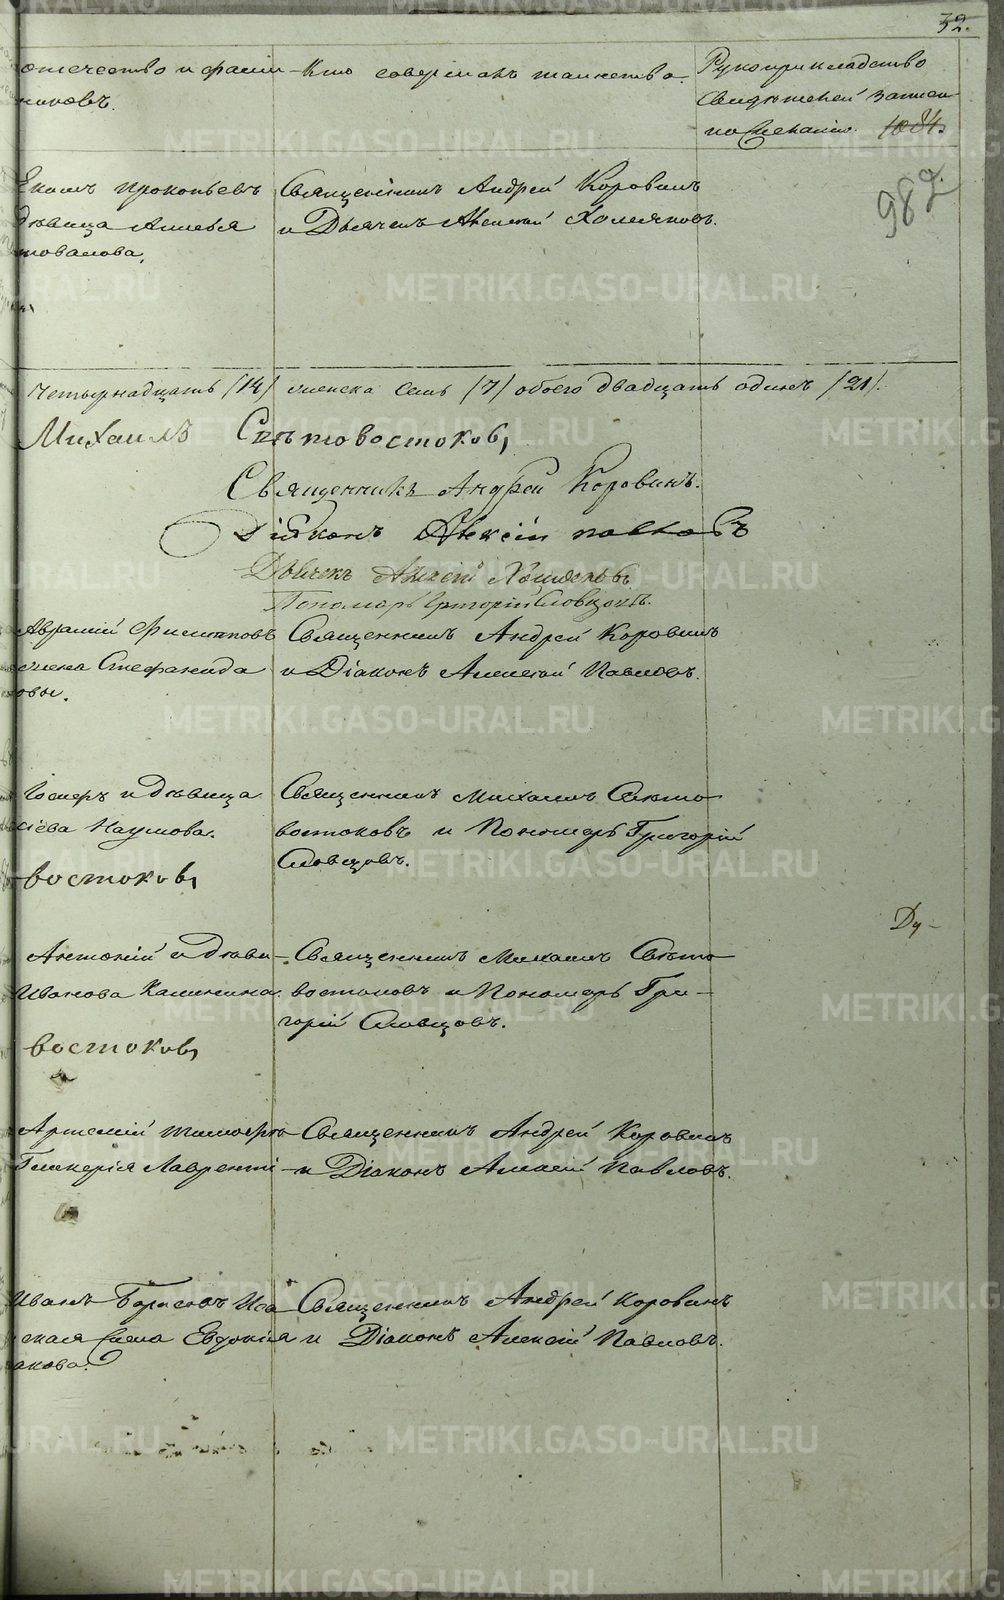 32.
отчество и фами- Кто совершалъ таинство. Рукоприкладство
никовъ. свидѣтелей записи
по желанію. 1081.
982.
Прокопьевъ Священникъ Андрей Коровинъ
дѣвица и Дьячекъ Алексѣй Хомяковъ.
новалова.
Четырнадцать /14/ женска семь /7/ обоего двадцать одинъ /21/.
Михаилъ Свѣтовостоковъ,
Священникъ Андрей Коровинъ.
Діаконъ Алексій Павловъ
Дьячекъ Алексѣй Хомяковъ
Пономарь Григорій Словцовъ.
Аврамій Филипповъ Священникъ Андрей Коровинъ
Стефанида и Діаконъ Алексѣй Павловъ.
овы.
и дѣвица Священникъ Михаилъ Свѣто
сіева Наумова. востоковъ и Пономарь Григорій
Словцовъ.
востоковъ,
Ду-
Антоній и дѣви- Священникъ Михаилъ Свѣто
Иванова Калинина. востоковъ и Пономарь Гри-
горій Словцовъ.
востоковъ,
Артемій Тимофѣ Священникъ Андрей Коровинъ
Гликерія Лавренті- и Діаконъ Алексѣй Павловъ.
Иванъ Борисовъ Иса Священникъ Андрей Коровинъ
Евдокія и Діаконъ Алексѣй Павловъ.
акова.
METRIKI.GASO-URAL.RU